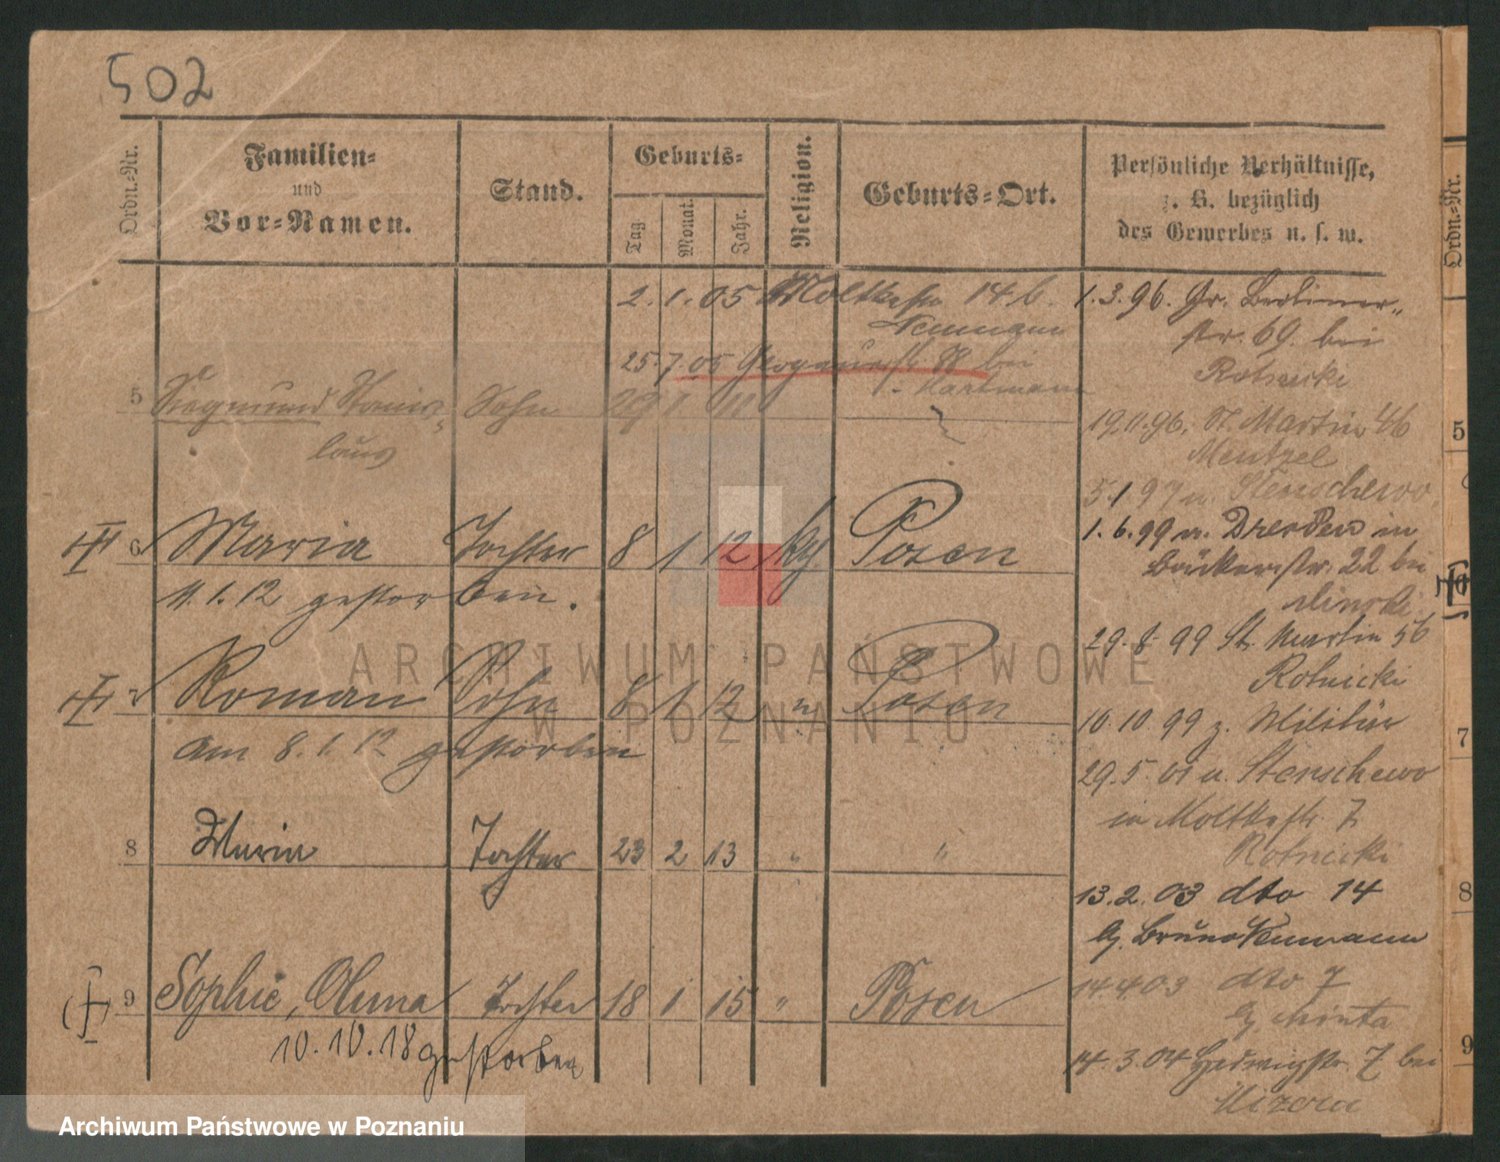 502
Ordn.-Nr.
Familien-
und
Vor-Namen.
Stand.
Geburts-
Tag
Monat.
Jahr.
Religion.
Geburts-Ort.
Persönliche Verhältnisse,
z. B. bezüglich
des Gewerbes u. s. w.
Ordn.-Nr.
2. 1. 05 Moltkestr. 14 b.
Neumann
25. 7. 05 bei
Hartmann
5 Siegmund Stanis-
laus
Sohn
6 Maria Tochter 8 1 12 Posen
11. 1. 12 gestorben.
Roman Sohn 8 1 12 Posen
am 8. 1. 12 gestorben
8 Maria Tochter 23 2 13 " "
9 Sophie, Tochter 18 1 15 " Posen
10. 10. 18 gestorben
1. 3. 96. Gr. Berliner-
str. 69. bei
Rotnicki
19. 11. 96. St. Martin 46
Mentzel
5. 1 97 n. Stenschewo
1. 6. 99 n. Dresden in
22 bei
29. 8. 99 St. Martin 56
Rotnicki
10. 10. 99 z. Militär
29. 5. 01 v. Stenschewo
in Moltkestr. 7
Rotnicki
13. 2. 03 dto 14
b. Bruno Neumann
14. 4. 03 dto 7
14. 3. 04 Hedwigstr. 7 bei
5
7
8
9
ARCHIWUM PAŃSTWOWE
W POZNANIU
Archiwum Państwowe w Poznaniu